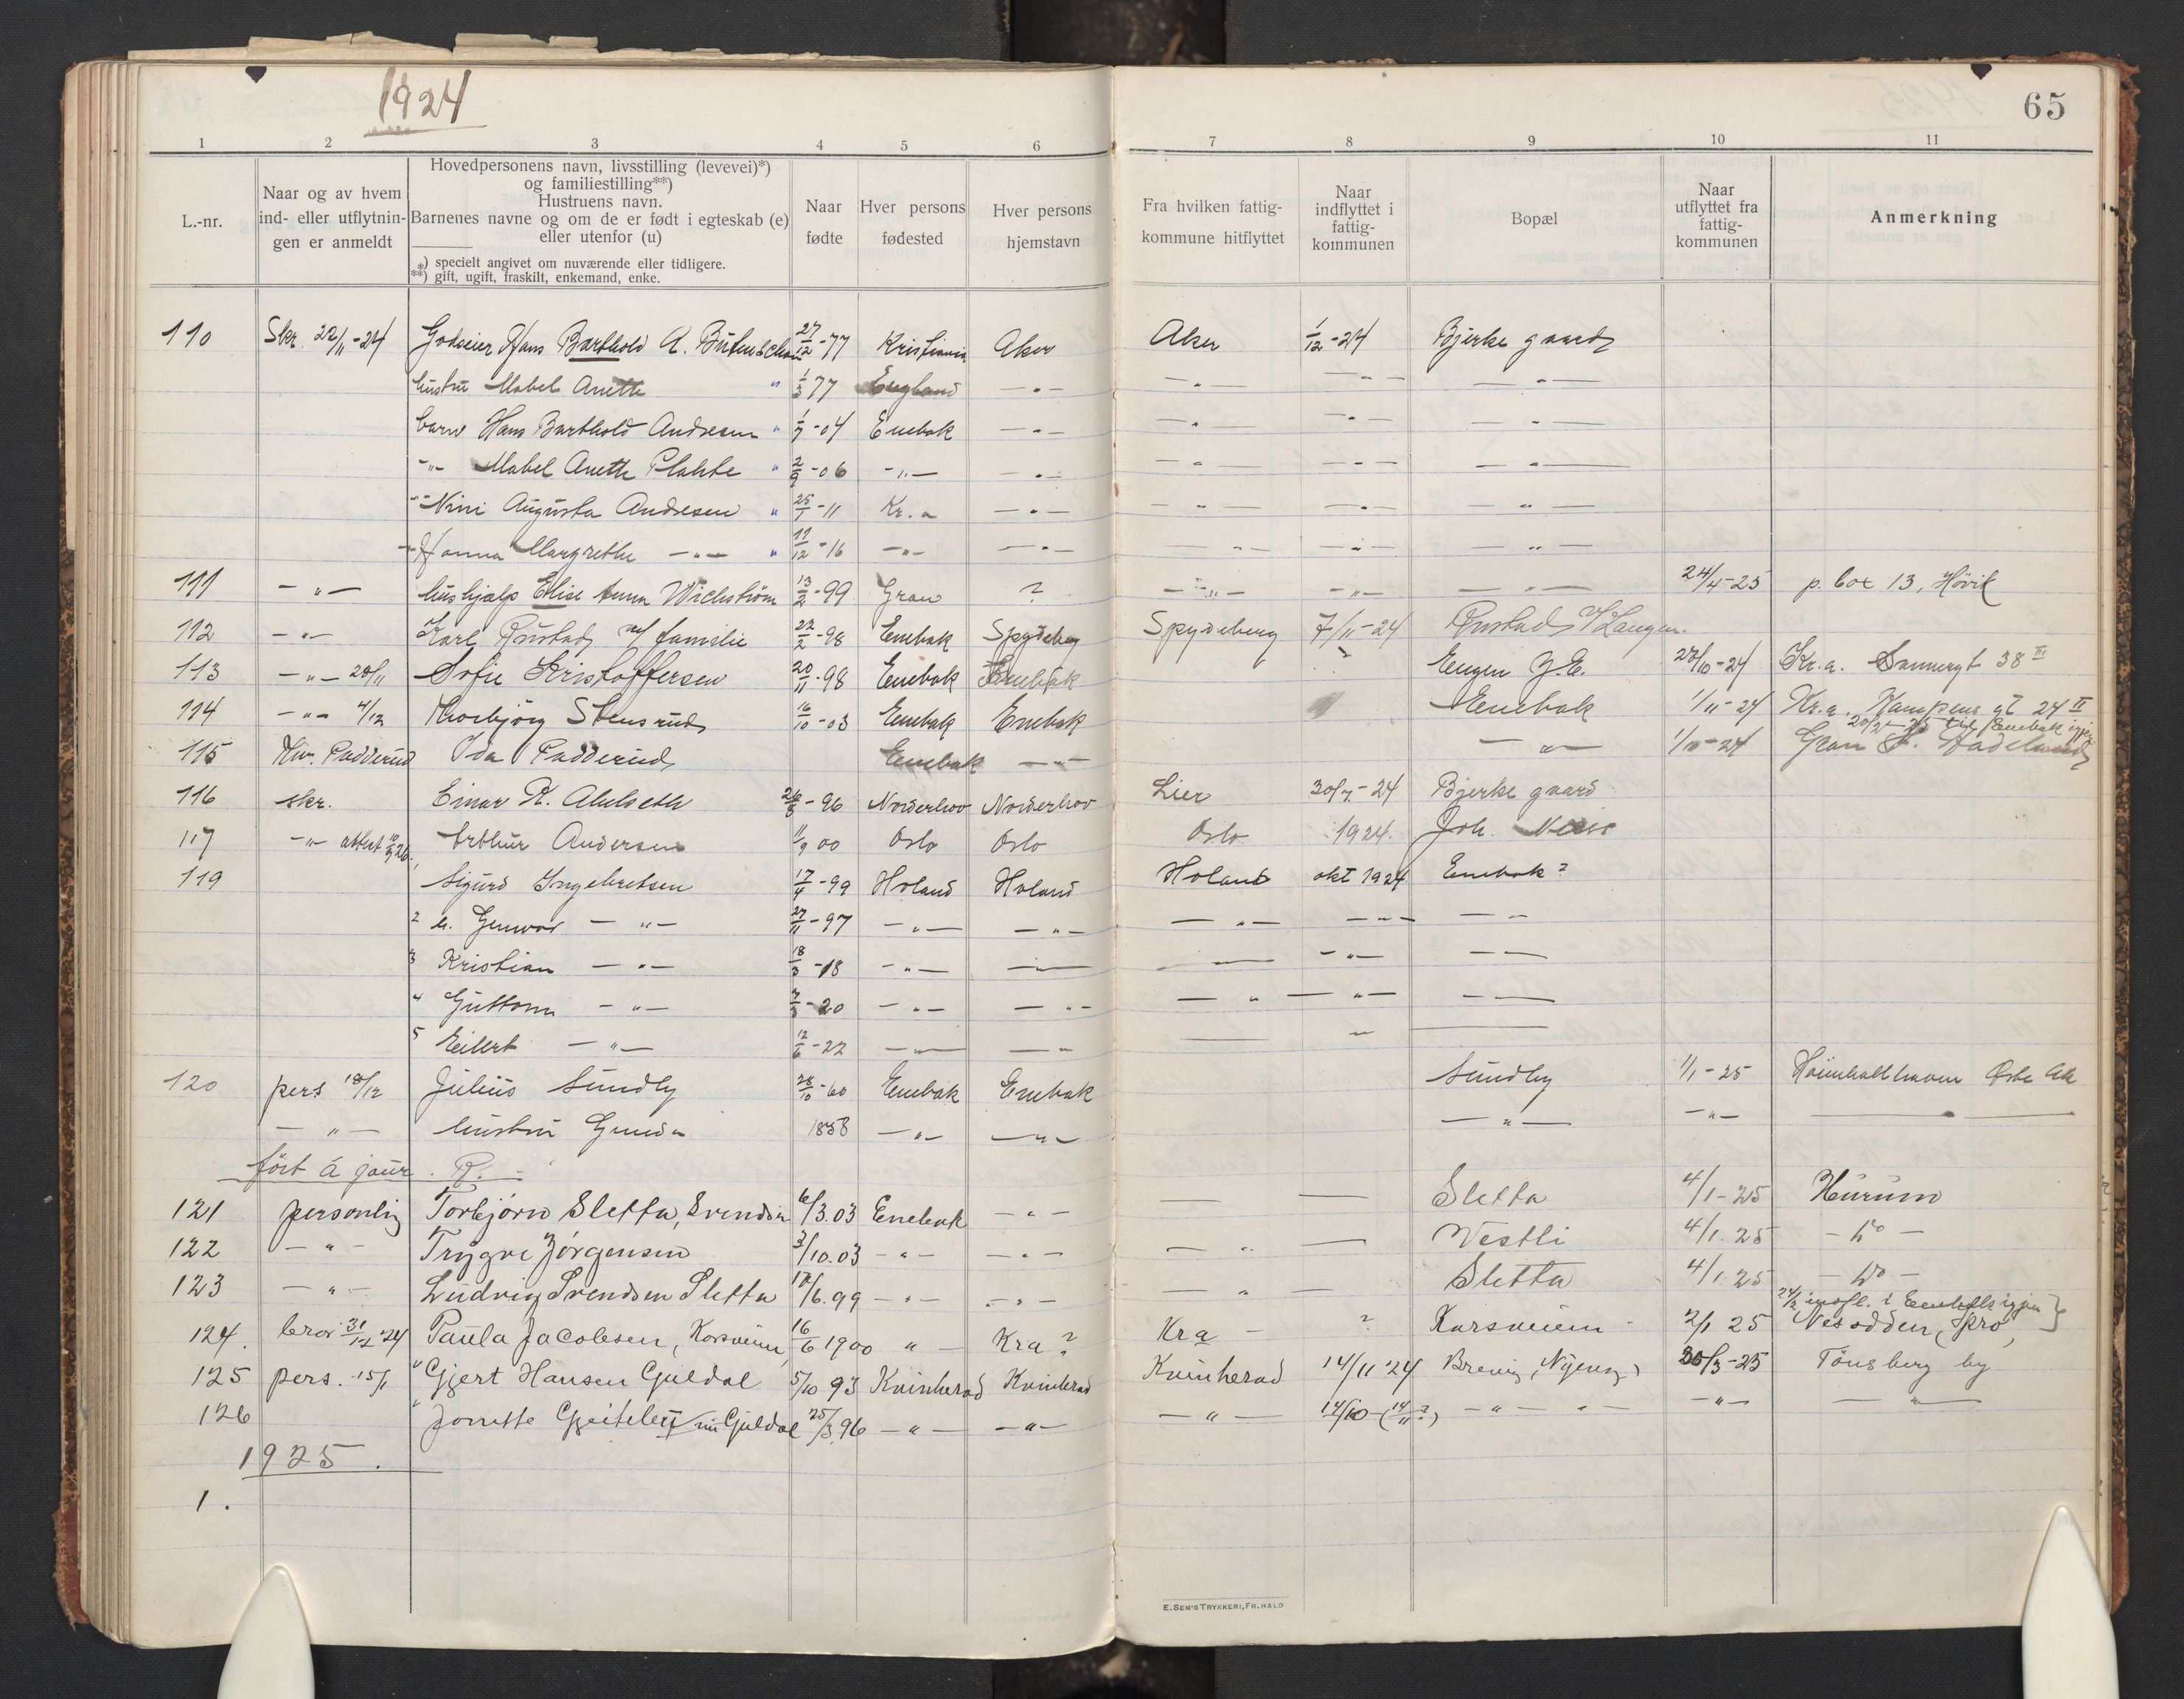 1924
65
1 2 3 4 5 6 7 8 9 10 11
L.-nr.
Naar og av hvem
ind- eller utflytnin-
gen er anmeldt
Hovedpersonens navn, livsstilling (levevei)*)
og familiestilling**)
Hustruens navn.
Barnenes navne og om de er født i egteskab (e)
eller utenfor (u)
*) specielt angivet om nuværende eller tidligere.
**) gift, ugift, fraskilt, enkemand, enke.
Naar
fødte
Hver persons
fødested
Hver persons
hjemstavn
Fra hvilken fattig-
kommune hitflyttet
Naar
indflyttet i
fattig-
kommunen
Bopæl
Naar
utflyttet fra
fattig-
kommunen
Anmerkning
110 Skr. 22/11-24 Godseier Hans Barthold A. Butenschøn 27/12-77 Kristiania Aker Aker 1/12-24 Bjerke gaard
hustru Mabel Anette " 1/3 77 England -"- -"- -"- -"-
barn Hans Barthold Andresen " 1/7-04 Enebak -"- -"- -"- -"-
-"- Mabel Anette Plahte " 2/9-06 -"- -"- -"- -"- -"-
-"- Nini Augusta Andresen " 25/1-11 Kr.a -"- -"- -"- -"-
-"- Hanna Margrethe -"- " 17/12-16 -"- -"- -"- -"- -"-
111 -"- hushjælp Elise Anna Wichstrøm 13/2-99 Gran ? -"- -"- -"- 24/4-25 p. box 13, Hövik
112 -"- Karl Rustad m/ familie 22/2-98 Enebak Spydeberg Spydeberg 7/11-24 Rustad V/Langen.
113 -"- 28/11 Sofie Kristoffersen 20/11-98 Enebak Enebak ? Eugen Y.E. 28/10-24 Kr.a. Sannergt 38 III
114 -"- 4/12 Thorbjörg Stensrud 16/10-03 Enebak Enebak Enebak 1/11-24 Kr.a. Kampens gt 24 II
20/2-25 til Enebak igjen
115 Hw. Padderud Ida Padderud Enebak -"- -"- 1/10-24 Gran P. Hadeland
116 skr. Einar R. Ahlseth 26/8-96 Norderhov Norderhov Lier 30/7-24 Bjerke gaard
117 -"- attest 10/9 26. Arthur Andersen 11/9 00 Oslo Oslo Oslo 1924. Joh. Næss
119 Sigurd Ingebretsen 17/4-99 Høland Høland Høland okt 1924 Enebak?
2 h. Gunvor -"- 27/11-97 -"- -"- -"- -"- -"-
3 Kristian -"- 18/3-18 -"- -"- -"- -"- -"-
4 Guttorm -"- 7/3-20 -"- -"- -"- -"- -"-
5 Eilert -"- 12/6-22 -"- -"- -"-
120 pers 18/12 Julius Sundby 28/10-60 Enebak Enebak Sundby 1/1-25
-"- hustru Gunda 1858 -"- -"- -"- -"- -"-
ført á jour. R.
121 personlig Torbjørn Sletta, Svendsen 6/3.03 Enebak -"- Sletta 4/1-25 Hurum
122 -"- Trygve Jørgensen 3/10.03 -"- -"- -"- Vestli 4/1.25 -do-
123 -"- Ludvig Svendsen Sletta 17/6.99 -"- -"- -"- Sletta 4/1.25 -do-
24/2 indfl. i Enebak igjen
124. bror 31/12 24 Paula Jacobsen, Korsveien 16/6 1900 " Kra? Kra - ? Korsveien 2/1 25 Nesodden, (pro,
125 pers. 15/1 " Gjert Hansen Guldal 5/10 93 Kvinherad Kvinherad Kvinherad 14/11 '24 Brevig, 30/3-25 Tönsberg by
126 " Jonette Gjeitsley nu Guldal 25/3.96 -"- -"- -"- 14/10-(14/11?) -"- -"- -"- -"-
1925.
1.
E. SEM'S TRYKKERI, FR.HALD